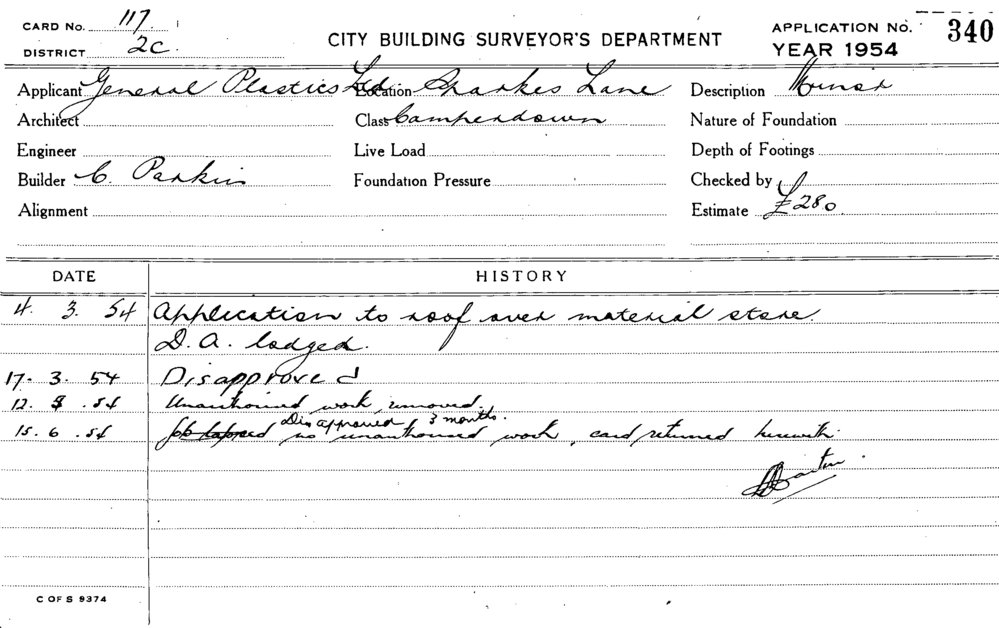 CARD No. 117
DISTRICT 2C.
CITY BUILDING SURVEYOR'S DEPARTMENT
APPLICATION No. 340
YEAR 1954
Applicant General Plastics Ltd Location Sparkes Lane Description Minor
Architect Class Camperdown Nature of Foundation
Engineer Live Load Depth of Footings
Builder C. Parkin Foundation Pressure Checked by
Alignment Estimate £280.
DATE HISTORY
4. 3. 54 Application to roof over material store.
D.A. lodged.
17. 3. 54 Disapproved
12. .54 Unauthorised work removed.
Disapproved 3 months.
15. 6. .54 Job lapsed no unauthorised work, card returned herewith
C OF S 9374